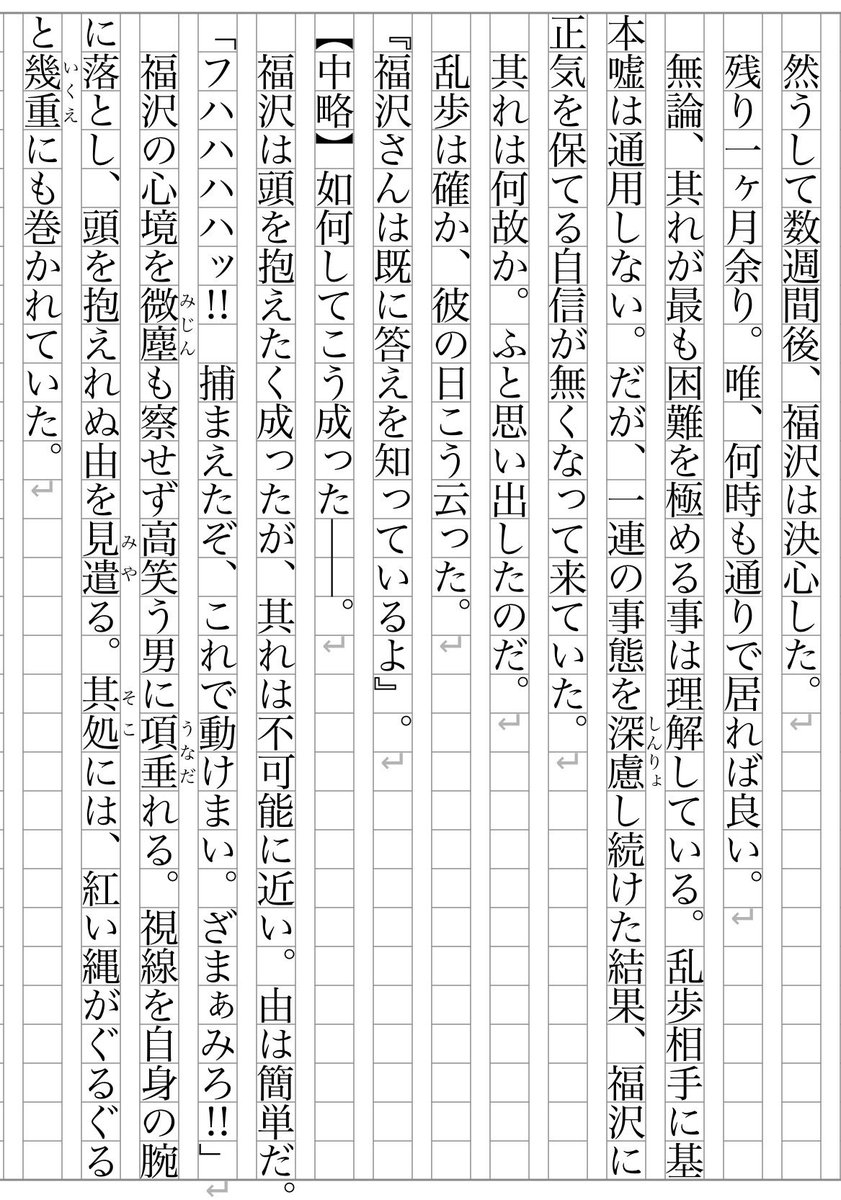 然うして数週間後、福沢は決心した。
残り一ヶ月余り。唯、何時も通りで居れば良い。
無論、其れが最も困難を極める事は理解している。乱歩相手に基
本嘘は通用しない。だが、一連の事態を深慮し続けた結果、福沢に
しんりょ
正気を保てる自信が無くなって来ていた。
其れは何故か。ふと思い出したのだ。
乱歩は確か、彼の日こう云った。
『福沢さんは既に答えを知っているよ』。
【中略】如何してこう成った――。
福沢は頭を抱えたく成ったが、其れは不可能に近い。由は簡単だ。
「フハハハハッ!!　捕まえたぞ、これで動けまい。ざまぁみろ!!」
福沢の心境を微塵も察せず高笑う男に項垂れる。視線を自身の腕
みじん
うなだ
に落とし、頭を抱えれぬ由を見遣る。其処には、紅い縄がぐるぐる
みや
そこ
と幾重にも巻かれていた。
いくえ